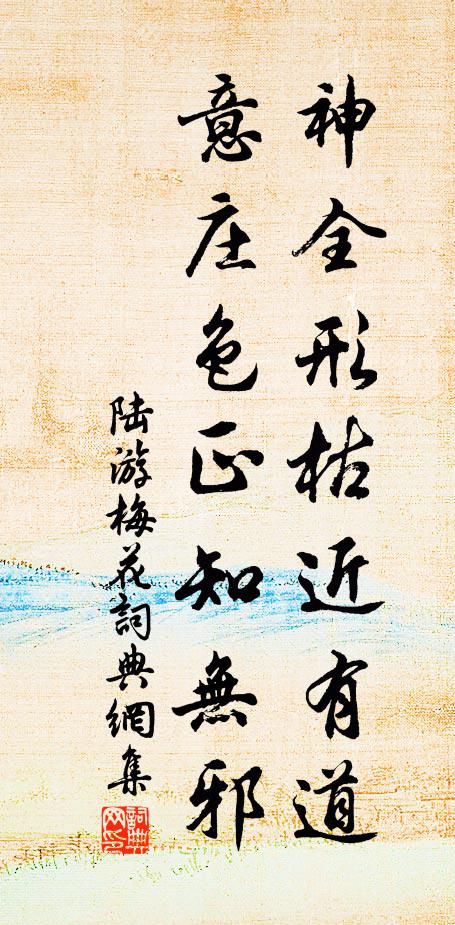 神全形枯近有道
意庄色正知無邪
陆游梅花詞典網集
詞典网印